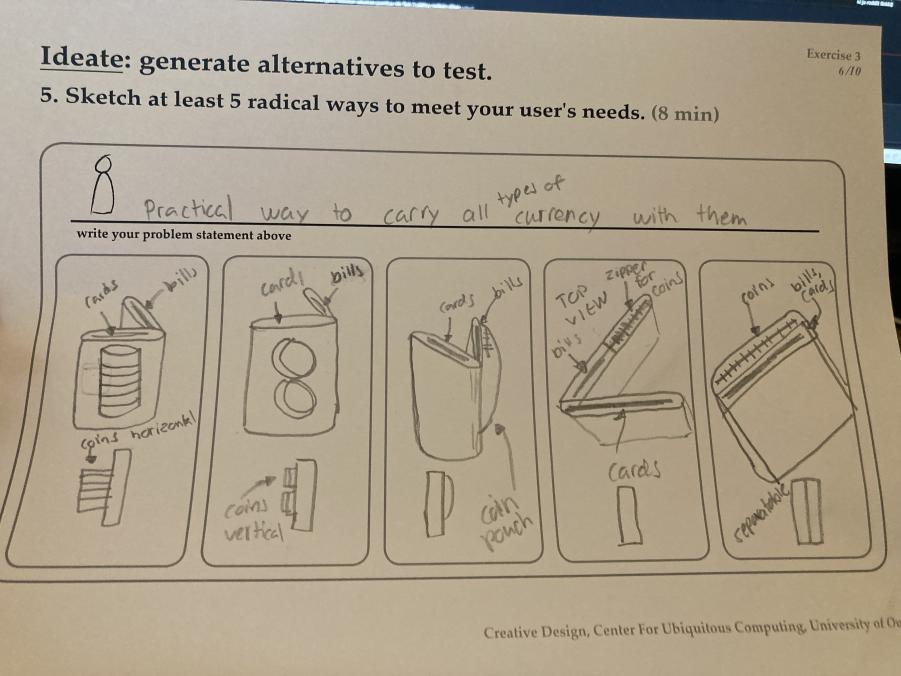 Exercise 3
6/10
Ideate: generate alternatives to test.
5. Sketch at least 5 radical ways to meet your user's needs. (8 min)
Practical way to carry all types of currency with them
write your problem statement above
cards
bills
coins horizontal
cards
bills
coins
vertical
cards
bills
coin
pouch
TOP
VIEW
zipper
for
coins
bills
cards
coins
bills,
cards
separatable
Creative Design, Center For Ubiquitous Computing, University of